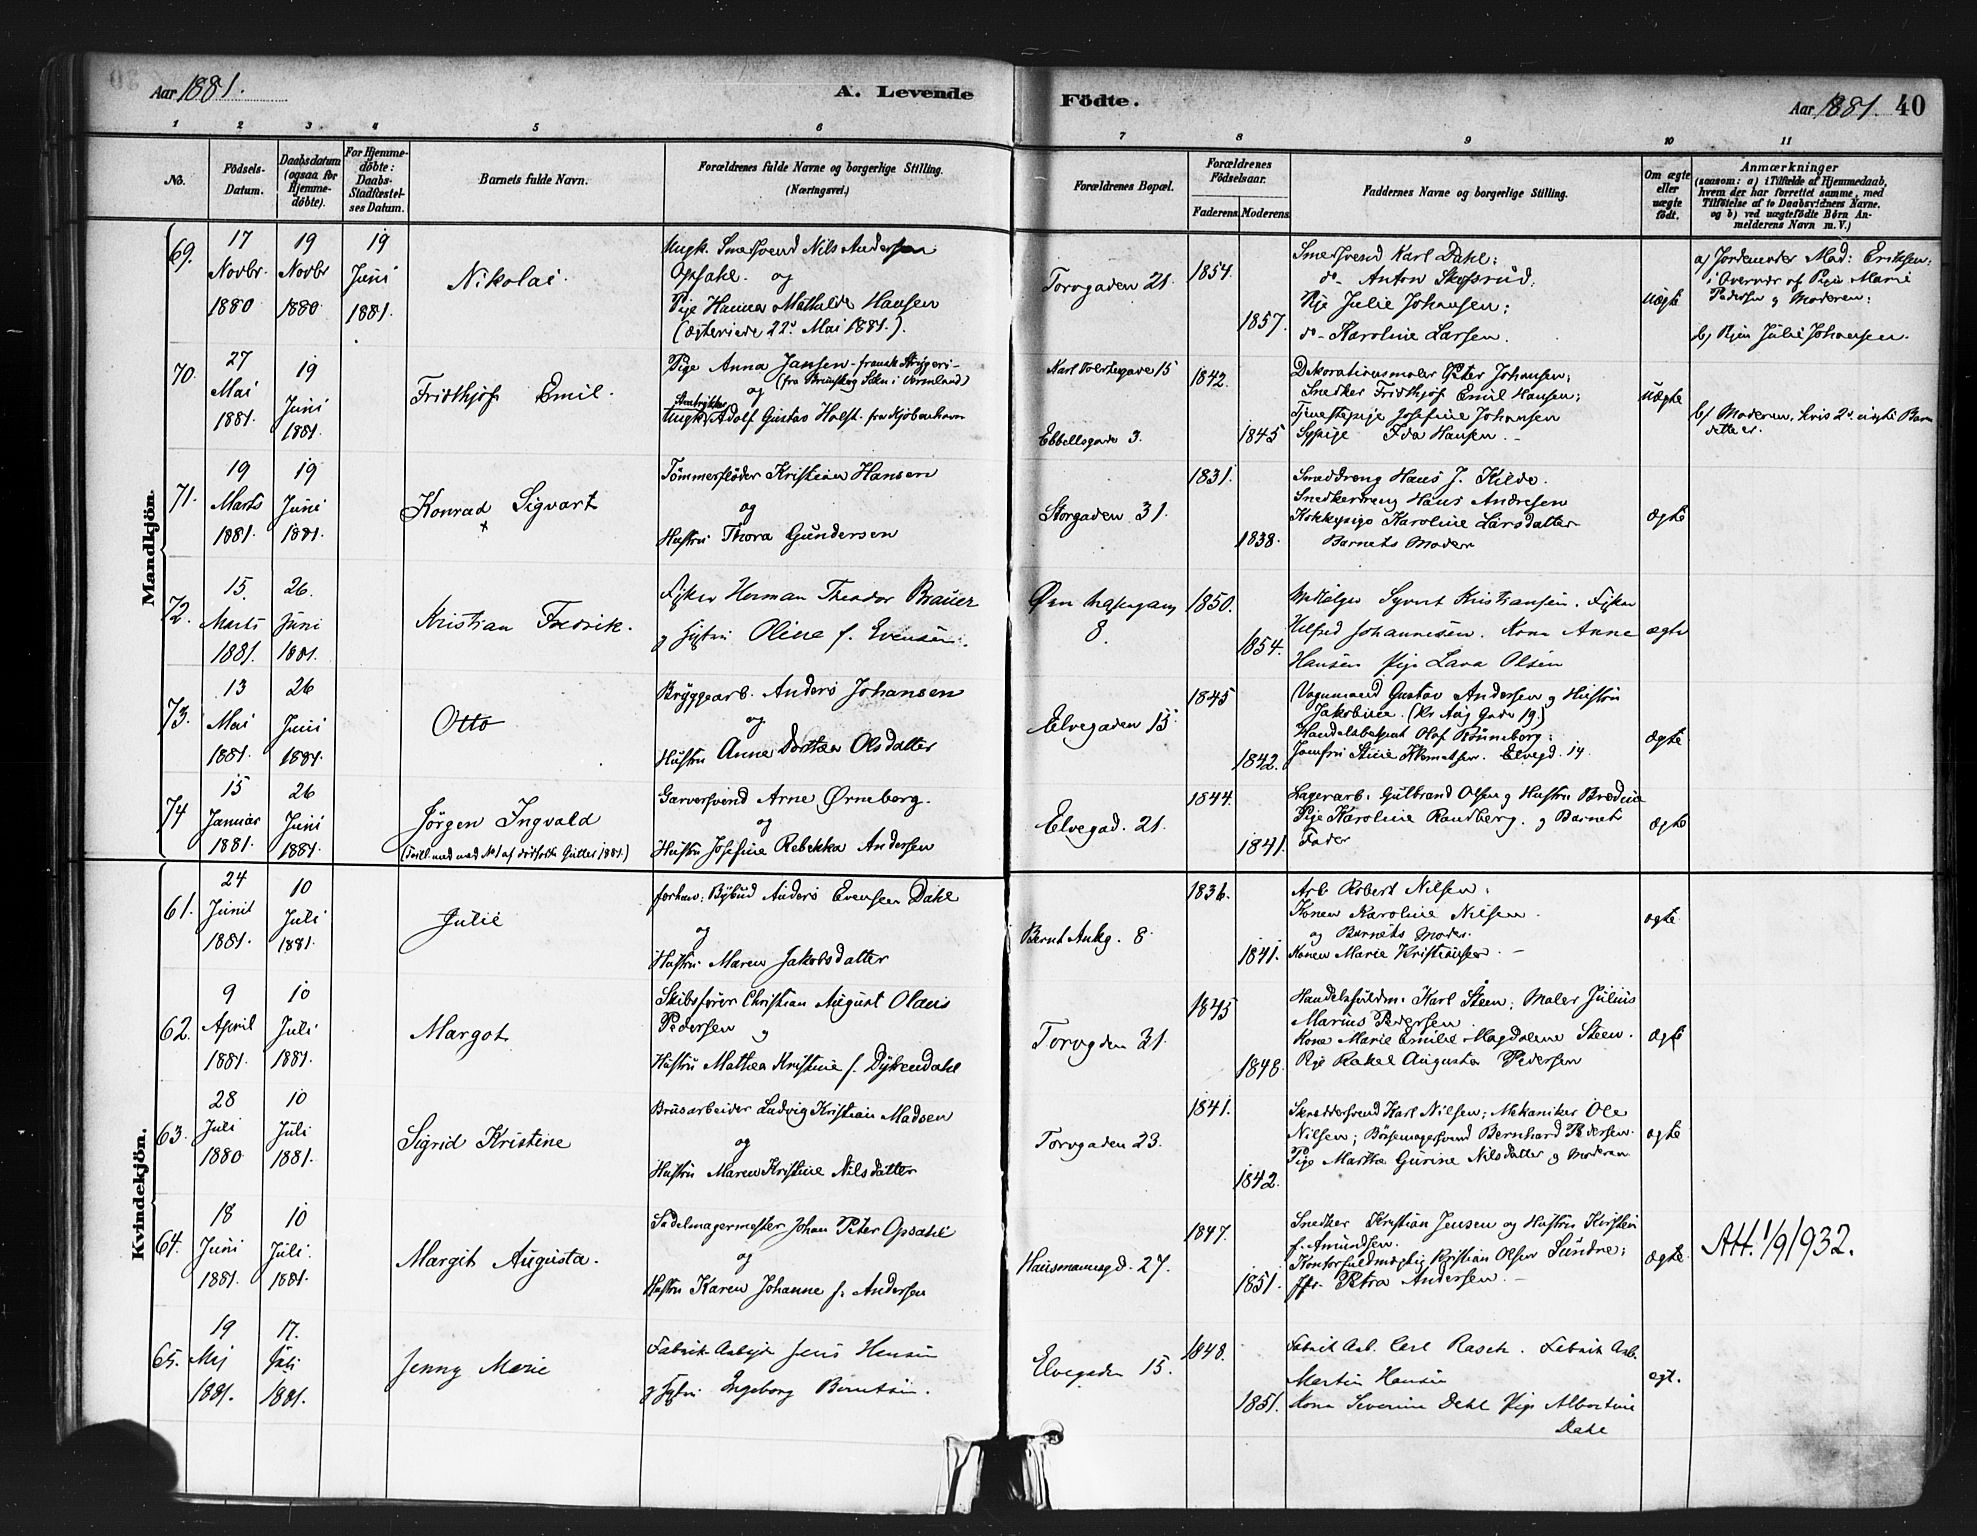 Aar 1881. A. Levende Födte. Aar 1881. 40
1 2 3 4 5 6 7 8 9 10 11
No. Födsels-Datum. Daabsdatum (ogsaa for Hjemme-döbte). For Hjemme-döbte: Daabs-Stadfæstel-ses Datum. Barnets fulde Navn. Forældrenes fulde Navne og borgerlige Stilling. (Næringsvei.) Forældrenes Bopæl. Forældrenes Födselsaar. Faderens. Moderens. Faddernes Navne og borgerlige Stilling. Om ægte eller uægte födt. Anmærkninger (saasom: a) i Tilfælde af Hjemmedaab, hvem der har forrettet samme, med Tilföielse af to Daabsvidners Navne. og b) ved uægtefödte Börn An-melderens Navn m. V.)
Mandkjön.
69. 17 Novbr. 1880 19 Novbr 1880 19 Juni 1881. Nikolai.
Ungk. Smedsvend Nils Andersen
Opsahl. og
Pige Hanna Mathilde Hansen
(ægteviede 22d Mai 1881.).
Torvgaden 21. 1854. 1857.
Smedsvend Karl Dahl;
do Anton Skofsrud;
Pige Julie Johansen;
do - Karoline Larsen.
Uægte
a) Jordemoder Mad: Eriksen;
i Overvær af Pigen Marie
Pedersen og Moderen;
b) Pigen Julie Johansen.
70. 27 Mai 1881. 19 Juni 1881. Fridthjof Emil.
Pige Anna Jansen - fransk Strygeri -
(fra Brunskog Sokn i Vermland)
og
Ungk. Adolf Gustav Holst. fra Kjøbenhavn
15 Ebbellsgade 3. 1842. 1845
Dekorationsmaler Peter Johansen;
Snedker Fridthjof Emil Hansen;
Tjenestepige Josefine Johansen
Sypige Ida Hansen. -
Uægte
b) Moderen, hvis 2det uægte Barn
dette er.
71. 19 Marts 1881. 19 Juni 1881. Konrad Sigvart
Tømmerfløder Kristian Hansen
og
Hustru Thora Gundersen
Storgaden 31. 1831. 1838.
Smeddreng Hans J. Kilde.
Snedkerdreng Hans Andresen
Kokkepige Karoline Larsdatter
Barnets Moder
Ægte
72. 15. Marts 1881. 26. Juni 1881. Kristian Fredrik.
Fisker Herman Theodor Brauer
og Hustru Oline f. Evensen.
8. 1850. 1854.
Syvert Kristiansen. Fisker
Hilfred Johannesen. Kone Anne
Hansen Pige Lava Olsen
ægte
73. 13 Mai 1881. 26 Juni 1881. Otto
Bryggearb. Anders Johansen
og
Hustru Anne Dorthea Olsdatter
Elvegaden 15 1845 1842.
Vognmand Gustav Andersen og Hustru
Jakobine. (Kr Aug Gade 19.)
Olof Rønneborg;
Jomfru Stine Elvegd. 14
Ægte
74 15 Januar 1881. 26 Juni 1881. Jørgen Ingvald
(Tvilling med No 1 af dødfødte Gutter 1881.)
Garversvend Arne Ørneberg.
og
Hustru Josefine Rebekka Andersen
Elvegad. 21. 1844. 1841.
Lagerarb. Gulbrand Olsen og Hustru
Pige Karoline Randberg. og Barnets
Fader
Ægte
Kvindekjön.
61. 24 Juni 1881. 10 Juli 1881. Julie
forhen: Bybud Anders Evensen Dahl
og
Hustru Maren Jakobsdatter
Bernt Ankg. 8. 1836. 1841.
Arb. Robert Nilsen;
Konen Karoline Nilsen.
og Barnets Moder.
Konen Marie Kristiansen. -
ægte
62. 9 April 1881. 10 Juli 1881. Margot
Skibsfører Christian August Olaus
Pedersen og
Hustru Mathea Kristine f. Dykendahl
Torvgden 31. 1845 1848.
Handelsfuldm. Karl Steen; Maler Julius
Marius Pedersen.
Kone Marie Emilie Magdalene Steen.
Pige Rakel Augusta Pedersen
Ægte
63. 28 Juli 1880 10 Juli 1881. Sigrid Kristine
Brusarbeider Ludvig Kristian Madsen
og
Hustru Maren Kristine Nilsdatter
Torvgaden 23. 1841. 1842.
Skræddersvend Karl Nilsen; Mekaniker Ole
Nilsen; Børsemagersvend Bernhard Pedersen.
Pige Marthe Gurine Nilsdatter og Moderen
ægte
64. 18 Juni 1881. 10 Juli. 1881. Margit Augusta.
Sadelmagermester Johan Peter Opsahl
og
Hustru Karen Johanne f. Andersen
Hausmannsgd. 27. 1847. 1851.
Snedker Kristian Jensen og Hustru Kirstin
f. Amundsen.
Kontorfuldmægtig Kristian Olsen Sundne;
Jfr. Petra Andersen. -
Ægte
Att. 1/9 1932.
65. 19 Mj 1881. 17. Juli 1881. Jenny Marie
Fabrik Arbejd Jens Hansen
og Hustru Ingeborg Berntsen.
Elvegaden 15. 1848. 1851.
Fabrik Arb. Carl Rasch. Fabrik Arb.
Martin Hansen
Kone Severine Dahl Pige Albertine
Dahl
egt.